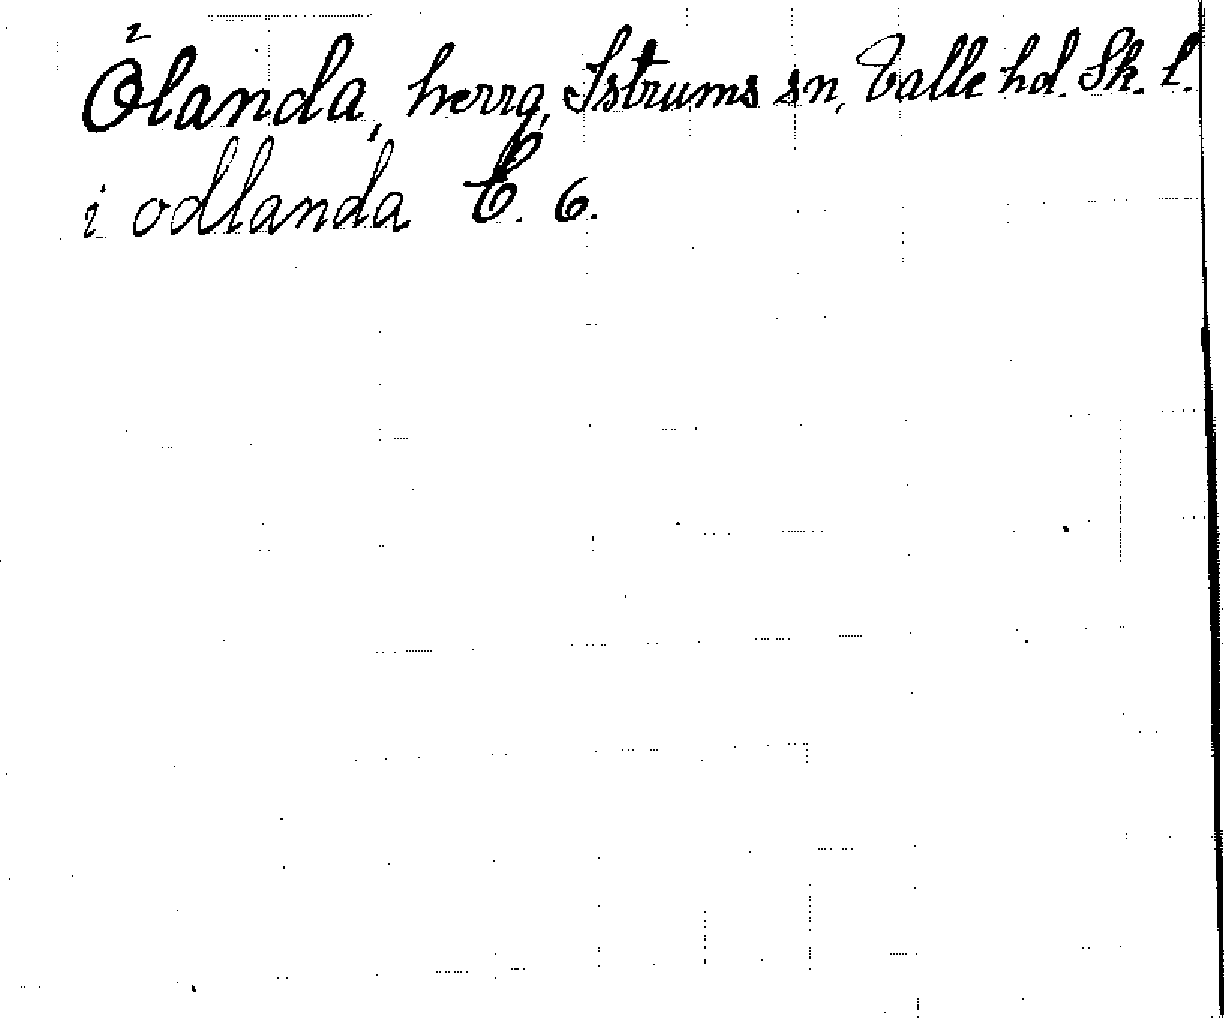 Ölanda, herrg, Istrums sn, Valle hd. Sk. l.
i odlanda C. 6.